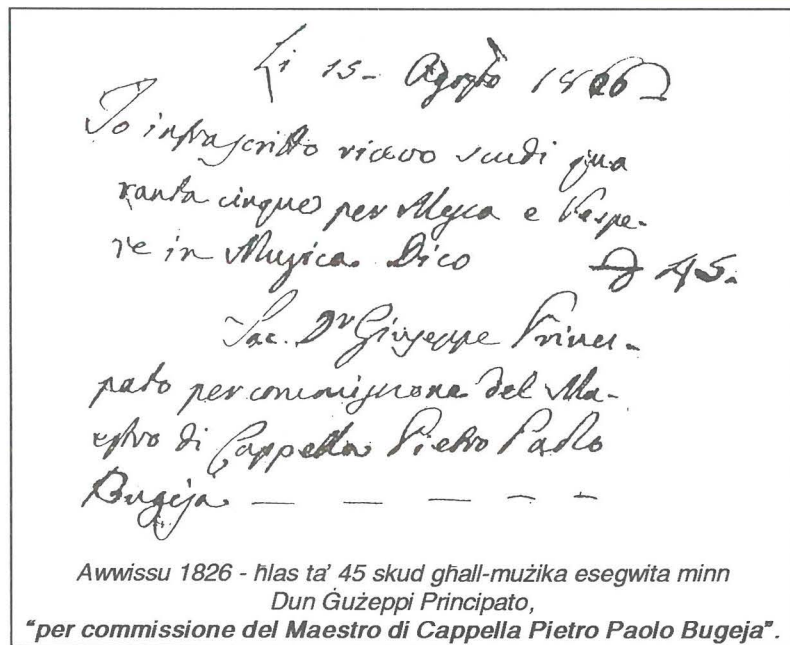 Li 15 - Agosto 1826
Io infrascritto ricevo scudi qua
ranta cinque per Messa e Vespe-
re in Musica. Dico 45.
Sac. Dn Giuseppe Princi-
pato per commissione del Ma-
estro di Cappella Pietro Paolo
Bugeja — — — — —
Awwissu 1826 - ħlas ta' 45 skud għall-mużika esegwita minn
Dun Ġużeppi Principato,
"per commissione del Maestro di Cappella Pietro Paolo Bugeja".